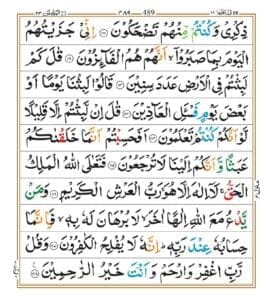 489
ذِكْرِىْ وَكُنْتُمْ مِّنْهُمْ تَضْحَكُوْنَ ۝ اِنِّىْ جَزَيْتُهُمُ
الْيَوْمَ بِمَا صَبَرُوْۤا ۙ اَنَّهُمْ هُمُ الْفَآئِزُوْنَ ۝ قٰلَ كَمْ
لَبِثْتُمْ فِى الْاَرْضِ عَدَدَ سِنِيْنَ ۝ قَالُوْا لَبِثْنَا يَوْمًا اَوْ
بَعْضَ يَوْمٍ فَسْـَٔلِ الْعَآدِّيْنَ ۝ قٰلَ اِنْ لَّبِثْتُمْ اِلَّا قَلِيْلًا
لَّوْ اَنَّكُمْ كُنْتُمْ تَعْلَمُوْنَ ۝ اَفَحَسِبْتُمْ اَنَّمَا خَلَقْنٰكُمْ
عَبَثًا وَّاَنَّكُمْ اِلَيْنَا لَا تُرْجَعُوْنَ ۝ فَتَعٰلَى اللّٰهُ الْمَلِكُ
الْحَقُّ ۚ لَاۤ اِلٰهَ اِلَّا هُوَ ۚ رَبُّ الْعَرْشِ الْكَرِيْمِ ۝ وَمَنْ
يَّدْعُ مَعَ اللّٰهِ اِلٰهًا اٰخَرَ ۙ لَا بُرْهَانَ لَهٗ بِهٖ ۙ فَاِنَّمَا
حِسَابُهٗ عِنْدَ رَبِّهٖ ؕ اِنَّهٗ لَا يُفْلِحُ الْكٰفِرُوْنَ ۝ وَقُلْ
رَّبِّ اغْفِرْ وَارْحَمْ وَاَنْتَ خَيْرُ الرّٰحِمِيْنَ ۝